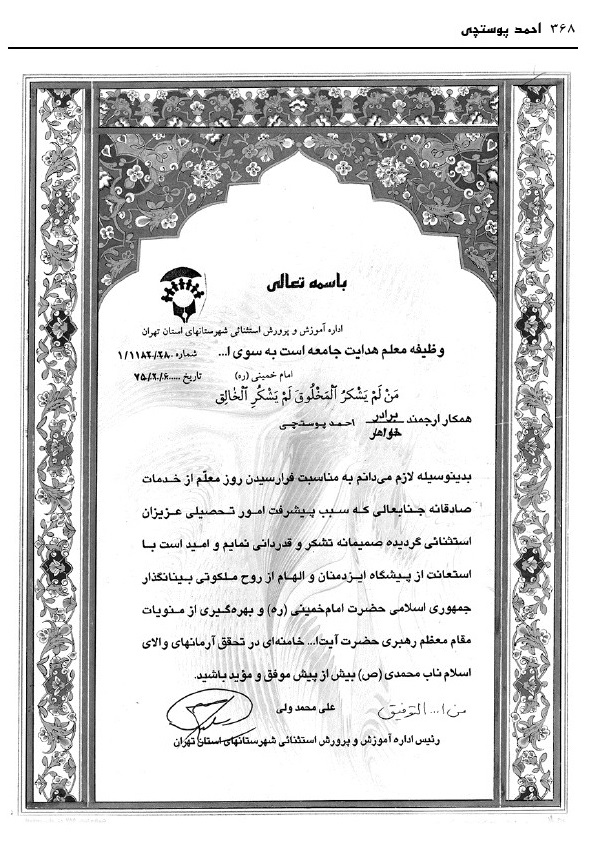 ۳۶۸ احمد پوستچی
باسمه تعالی
اداره آموزش و پرورش استثنائی شهرستانهای استان تهران
وظیفه معلم هدایت جامعه است به سوی ا...
شماره ۱/۱۱۸۲/۲۸۰
امام خمینی (ره)
تاریخ ۷۵/۲/۶
مَنْ لَمْ یَشْکُرُ الْمَخْلُوقَ لَمْ یَشْکُرِ الْخالِق
همکار ارجمند برادر احمد پوستچی
خواهر
بدینوسیله لازم می‌دانم به مناسبت فرارسیدن روز معلّم از خدمات
صادقانه جنابعالی که سبب پیشرفت امور تحصیلی عزیزان
استثنائی گردیده صمیمانه تشکر و قدردانی نمایم و امید است با
استعانت از پیشگاه ایزدمنان و الهام از روح ملکوتی بنیانگذار
جمهوری اسلامی حضرت امام‌خمینی (ره) و بهره‌گیری از منویات
مقام معظم رهبری حضرت آیت‌ا... خامنه‌ای در تحقق آرمانهای والای
اسلام ناب محمدی (ص) بیش از پیش موفق و مؤید باشید.
من ا... التوفیق
علی محمد ولی
رئیس اداره آموزش و پرورش استثنائی شهرستانهای استان تهران